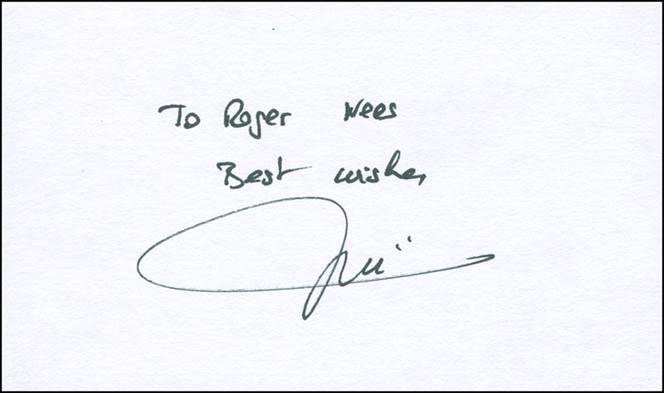 To Roger Wees
Best wishes